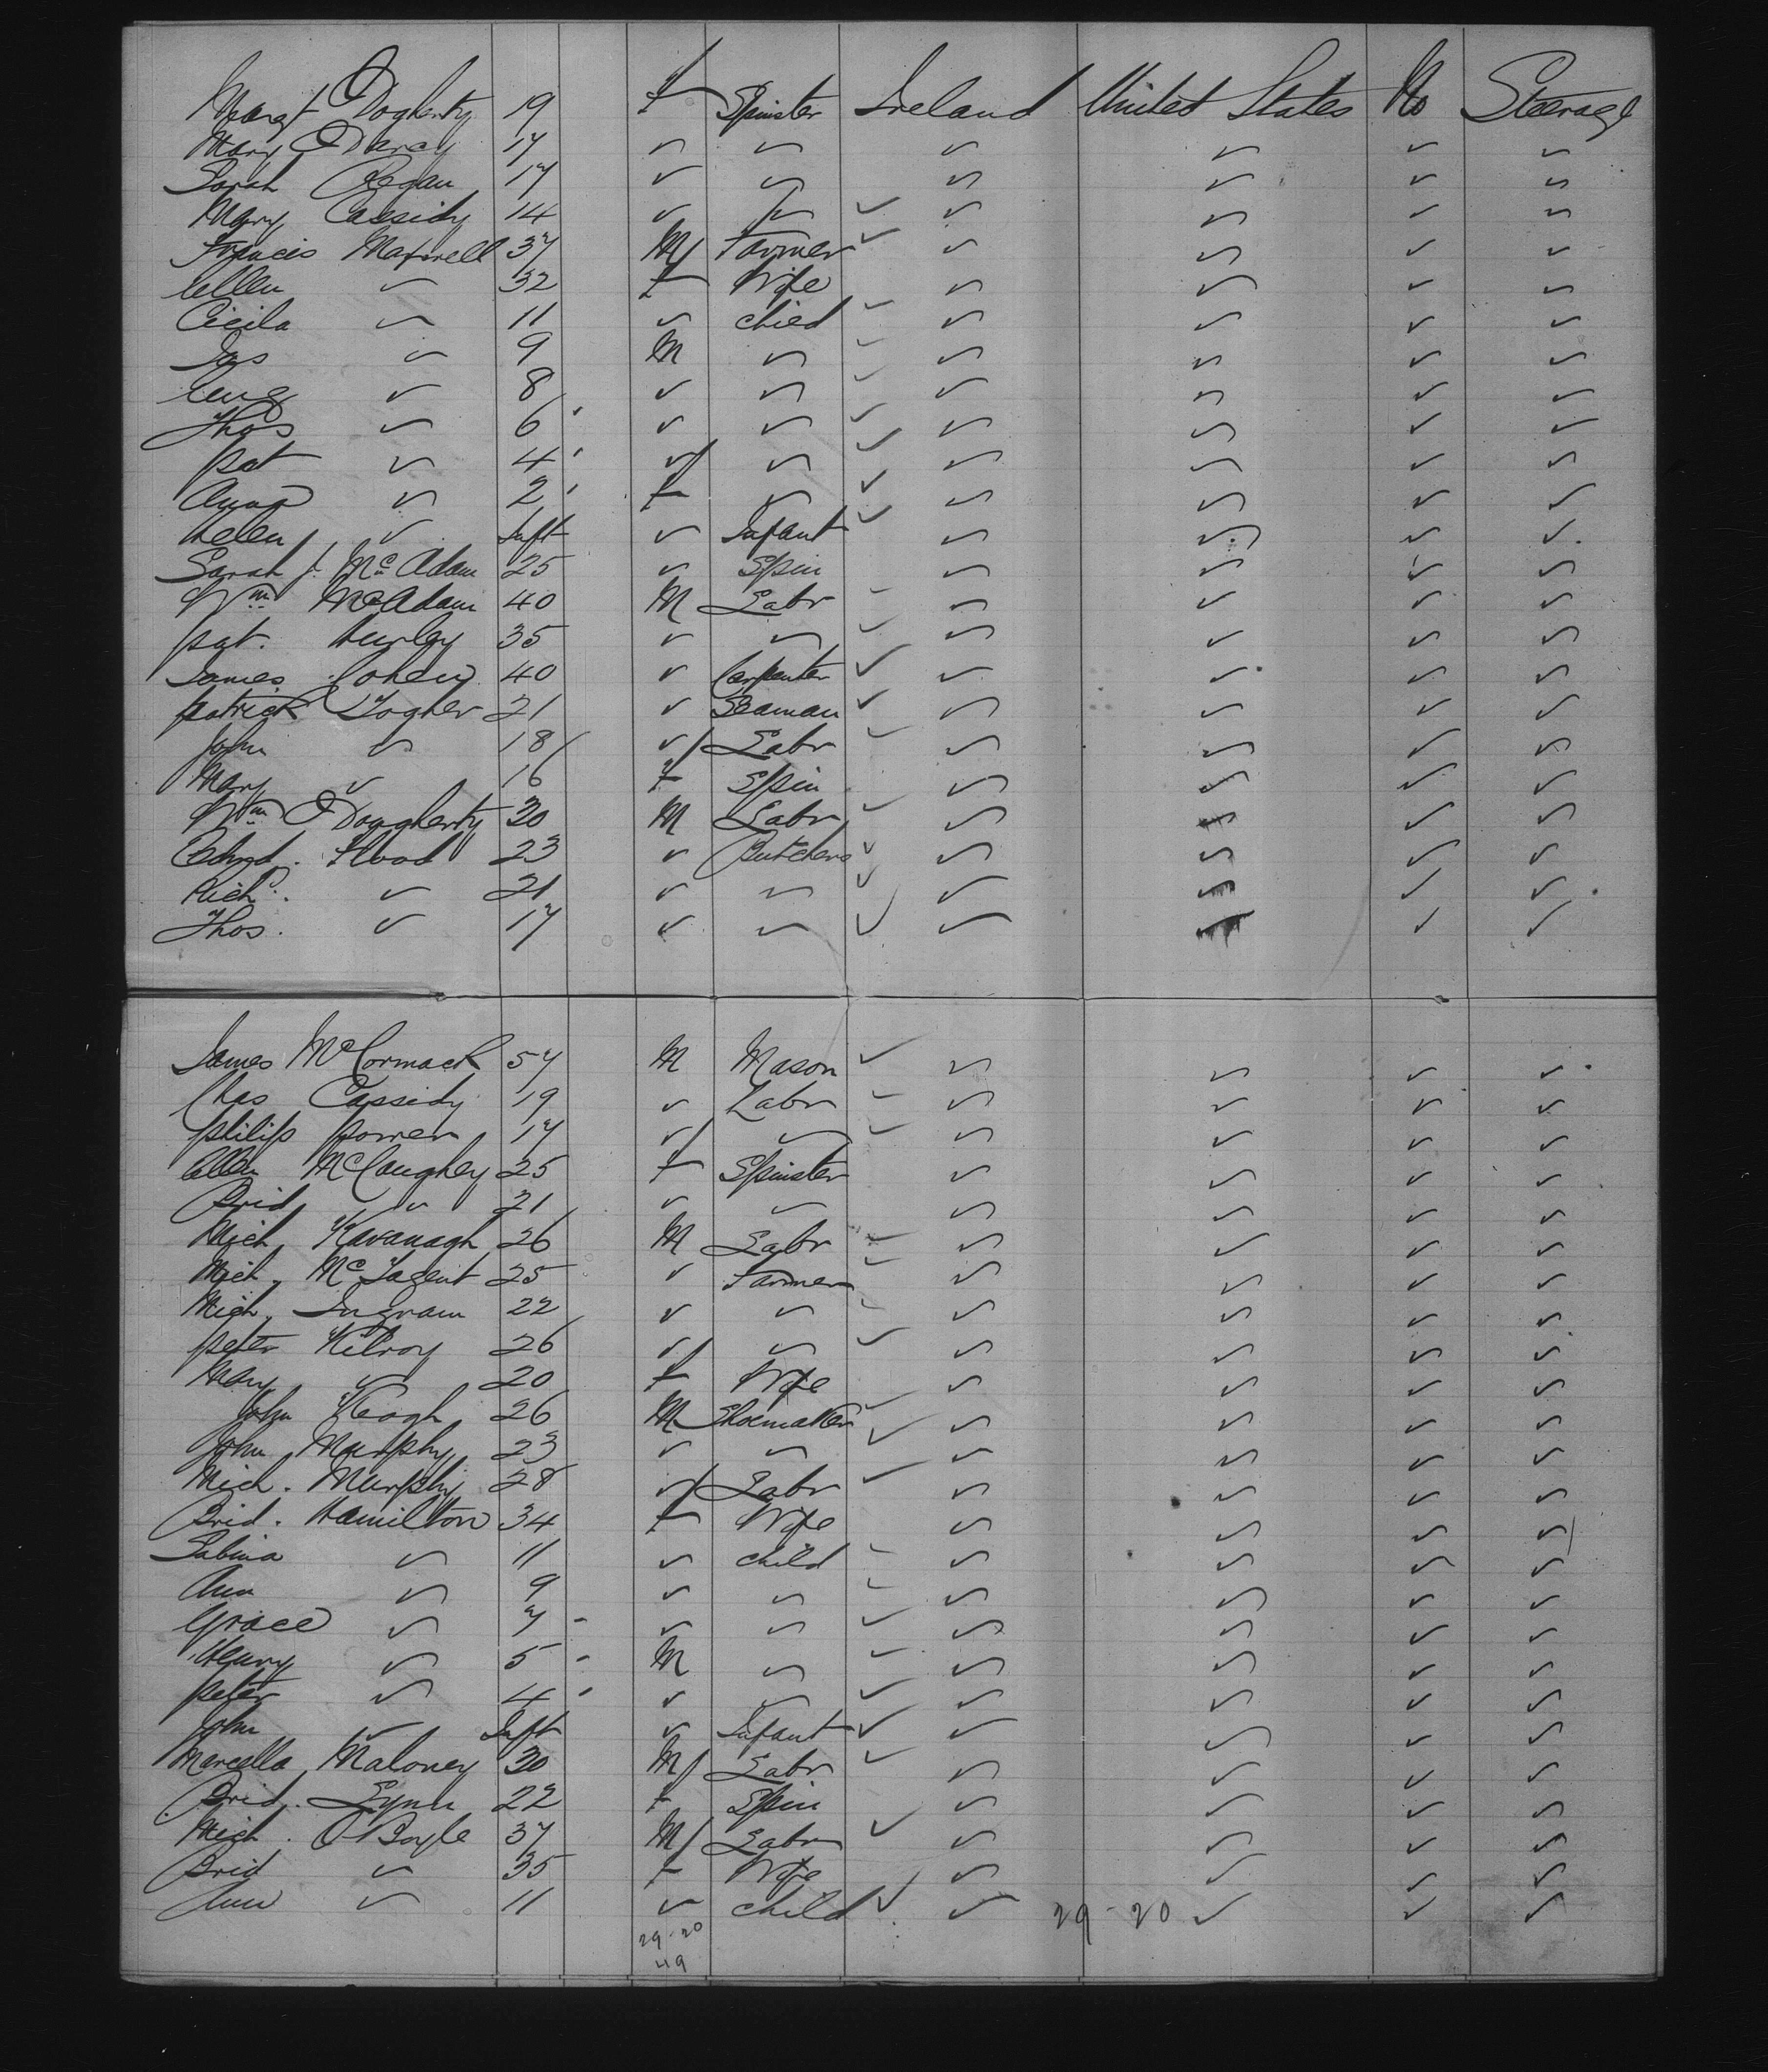 Margt O Dogherty 19 f Spinster Ireland United States No Steerage
Mary O Darcy 17 " " " " " "
Sarah Regan 17 " " " " " "
Mary Cassidy 14 " " " " " "
Francis Maxwell 37 M Farmer " " " "
Ellen " 32 f Wife " " " "
Cicila " 11 " child " " " "
Jas " 9 M " " " " "
" 8 " " " " " "
Thos " 6 " " " " " "
Pat " 4 " " " " " "
Anna " 2 f " " " " "
Helen " Inft " Infant " " " "
Sarah J. McAdam 25 " Spin " " " "
Wm McAdam 40 M Labr " " " "
Pat. Hurley 35 " " " " " "
James Cohen 40 " Carpenter " " " "
Patrick 21 " Seaman " " " "
John " 18 " Labr " " " "
Mary " 16 f Spin " " " "
Wm O'Dougherty 20 M Labr " " " "
Edwd. Flood 23 " Butchers " " " "
Richd. " 21 " " " " " "
Thos. " 17 " " " " " "
James McCormack 57 M Mason " " " "
Chas Cassidy 19 " Labr " " " "
Philip Power 17 " " " " " "
Ellen McCaughey 25 f Spinster " " " "
Brid " 21 " " " " " "
Mich Kavanagh 26 M Labr " " " "
Mich. 25 " Farmer " " " "
Mich. Ingram 22 " " " " " "
Peter Kilroy 26 " " " " " "
Mary " 20 f Wife " " " "
John Keogh 26 M Shoemaker " " " "
John Murphy 23 " " " " " "
Mich. Murphy 28 " Labr " " " "
Brid. Hamilton 34 f Wife " " " "
Sabina " 11 " child " " " "
Ann " 9 " " " " " "
Grace " 7 " " " " " "
Henry " 5 M " " " " "
Peter " 4 " " " " " "
John " Inft " Infant " " " "
Marcella Maloney 30 M Labr " " " "
Brid. Lynn 22 f Spin " " " "
Mich. O'Boyle 37 M Labr " " " "
Brid " 35 f Wife " " " "
Ann " 11 " child " 29-20 " " "
29-20
49